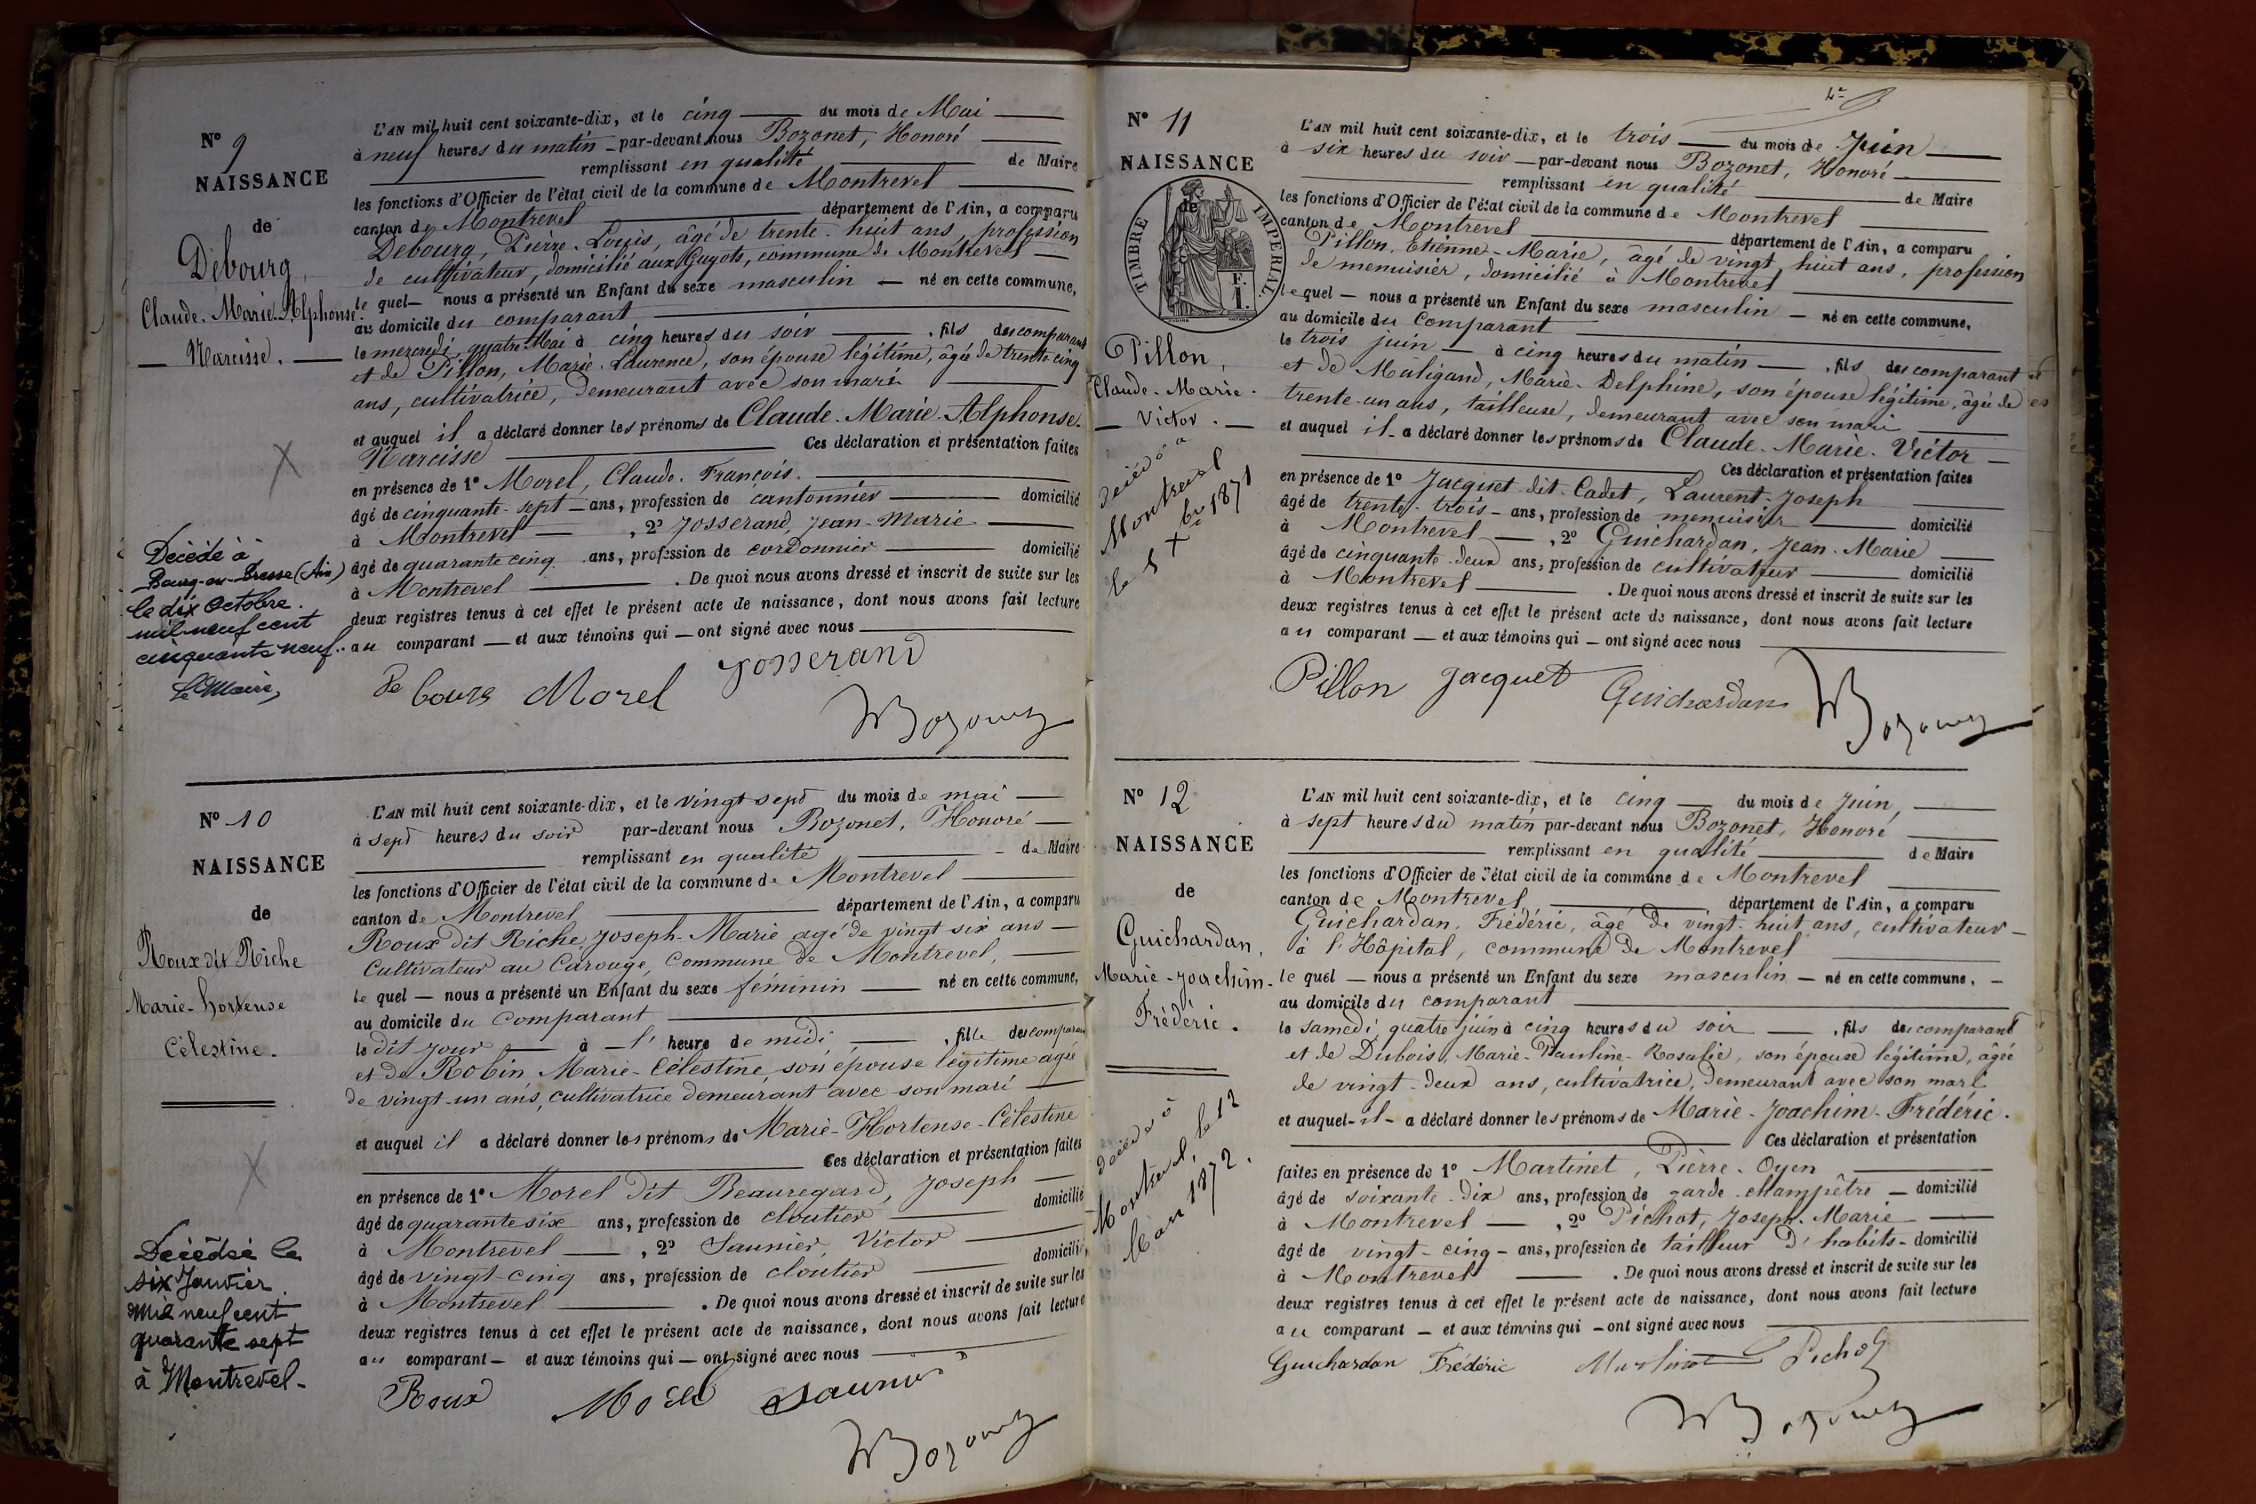 N° 9
NAISSANCE
de
Debourg,
Claude-Marie-Alphonse-
Narcisse.
Décédé à
Bourg-en-Bresse (Ain)
le dix Octobre
mil neuf cent
cinquante neuf.
Le Maire,
L'AN mil huit cent soixante-dix, et le cinq du mois de Mai
à neuf heures du matin par-devant nous Bozonet, Honoré
remplissant en qualité de Maire
les fonctions d'Officier de l'état civil de la commune de Montrevel
canton de Montrevel département de l'Ain, a comparu
Debourg, Pierre-Louis, âgé de trente-huit ans, profession
de cultivateur, domicilié aux Guyots, commune de Montrevel
le quel nous a présenté un Enfant du sexe masculin né en cette commune,
au domicile du comparant
le mercredi quatre Mai à cinq heures du soir, fils du comparant
et de Pillon, Marie-Laurence, son épouse légitime, âgée de trente-cinq
ans, cultivatrice, demeurant avec son mari
et auquel il a déclaré donner les prénoms de Claude-Marie-Alphonse-
Narcisse Ces déclaration et présentation faites
en présence de 1° Morel, Claude-François.
âgé de cinquante-sept ans, profession de cantonnier domicilié
à Montrevel, 2° Josserand, Jean-Marie
âgé de quarante cinq ans, profession de cordonnier domicilié
à Montrevel. De quoi nous avons dressé et inscrit de suite sur les
deux registres tenus à cet effet le présent acte de naissance, dont nous avons fait lecture
au comparant et aux témoins qui ont signé avec nous
de bourg Morel Josserand
Bozonet
N° 10
NAISSANCE
de
Roux dit Riche
Marie-hortense
Célestine.
Décédée le
six Janvier
mil neuf cent
quarante sept
à Montrevel.
L'AN mil huit cent soixante-dix, et le vingt sept du mois de mai
à sept heures du soir par-devant nous Bozonet, Honoré
remplissant en qualité de Maire
les fonctions d'Officier de l'état civil de la commune de Montrevel
canton de Montrevel département de l'Ain, a comparu
Roux dit Riche, Joseph-Marie agé de vingt six ans
cultivateur au Carouge, Commune de Montrevel,
le quel nous a présenté un Enfant du sexe féminin né en cette commune,
au domicile du comparant
le dit jour à l' heure de midi, fille du comparant
et de Robin Marie-Célestine, son épouse légitime agée
de vingt-un ans, cultivatrice demeurant avec son mari
et auquel il a déclaré donner les prénoms de Marie-Hortense-Célestine
Ces déclaration et présentation faites
en présence de 1° Morel dit Beauregard, Joseph
âgé de quarante six ans, profession de cloutier domicilié
à Montrevel, 2° Saunier, Victor
âgé de vingt-cinq ans, profession de cloutier domicilié
à Montrevel. De quoi nous avons dressé et inscrit de suite sur les
deux registres tenus à cet effet le présent acte de naissance, dont nous avons fait lecture
au comparant et aux témoins qui ont signé avec nous
Roux Morel Saunier
Bozonet
N° 11
NAISSANCE
de
TIMBRE IMPERIAL
Pillon,
Claude-Marie-
Victor.
Décédé à
Montrevel
le 5 Xbre 1871
L'AN mil huit cent soixante-dix, et le trois du mois de Juin
à six heures du soir par-devant nous Bozonet, Honoré
remplissant en qualité de Maire
les fonctions d'Officier de l'état civil de la commune de Montrevel
canton de Montrevel département de l'Ain, a comparu
Pillon, Etienne-Marie, âgé de vingt huit ans, profession
de menuisier, domicilié à Montrevel
le quel nous a présenté un Enfant du sexe masculin né en cette commune,
au domicile du comparant
le trois juin à cinq heures du matin, fils du comparant
et de Maligand, Marie-Delphine, son épouse légitime, âgée de
trente-un ans, tailleuse, demeurant avec son mari
et auquel il a déclaré donner les prénoms de Claude-Marie-Victor
Ces déclaration et présentation faites
en présence de 1° Jacquet dit Cadet, Laurent-Joseph
âgé de trente-trois ans, profession de menuisier domicilié
à Montrevel, 2° Guichardan, Jean-Marie
âgé de cinquante-deux ans, profession de cultivateur domicilié
à Montrevel. De quoi nous avons dressé et inscrit de suite sur les
deux registres tenus à cet effet le présent acte de naissance, dont nous avons fait lecture
au comparant et aux témoins qui ont signé avec nous
Pillon Jacquet Guichardan
Bozonet
N° 12
NAISSANCE
de
Guichardan,
Marie-Joachim-
Frédéric.
Décédé à
Montrevel, le 12
1872.
L'AN mil huit cent soixante-dix, et le cinq du mois de Juin,
à sept heures du matin par-devant nous Bozonet, Honoré
remplissant en qualité de Maire
les fonctions d'Officier de l'état civil de la commune de Montrevel
canton de Montrevel département de l'Ain, a comparu
Guichardan, Frédéric, âgé de vingt-huit ans, cultivateur
à l'Hôpital, commune de Montrevel
le quel nous a présenté un Enfant du sexe masculin né en cette commune,
au domicile du comparant
le samedi quatre juin à cinq heures du soir, fils du comparant
et de Dubois, Marie-Pauline-Rosalie, son épouse légitime, âgée
de vingt-deux ans, cultivatrice, demeurant avec son mari.
et auquel il a déclaré donner les prénoms de Marie-Joachim-Frédéric.
Ces déclaration et présentation
faites en présence de 1° Martinet, Pierre-Oyen
âgé de soixante-dix ans, profession de garde-champêtre domicilié
à Montrevel, 2° Pichot, Joseph-Marie
âgé de vingt-cinq ans, profession de tailleur d'habits domicilié
à Montrevel. De quoi nous avons dressé et inscrit de suite sur les
deux registres tenus à cet effet le présent acte de naissance, dont nous avons fait lecture
au comparant et aux témoins qui ont signé avec nous
Guichardan Frédéric Martinet Pichot
Bozonet